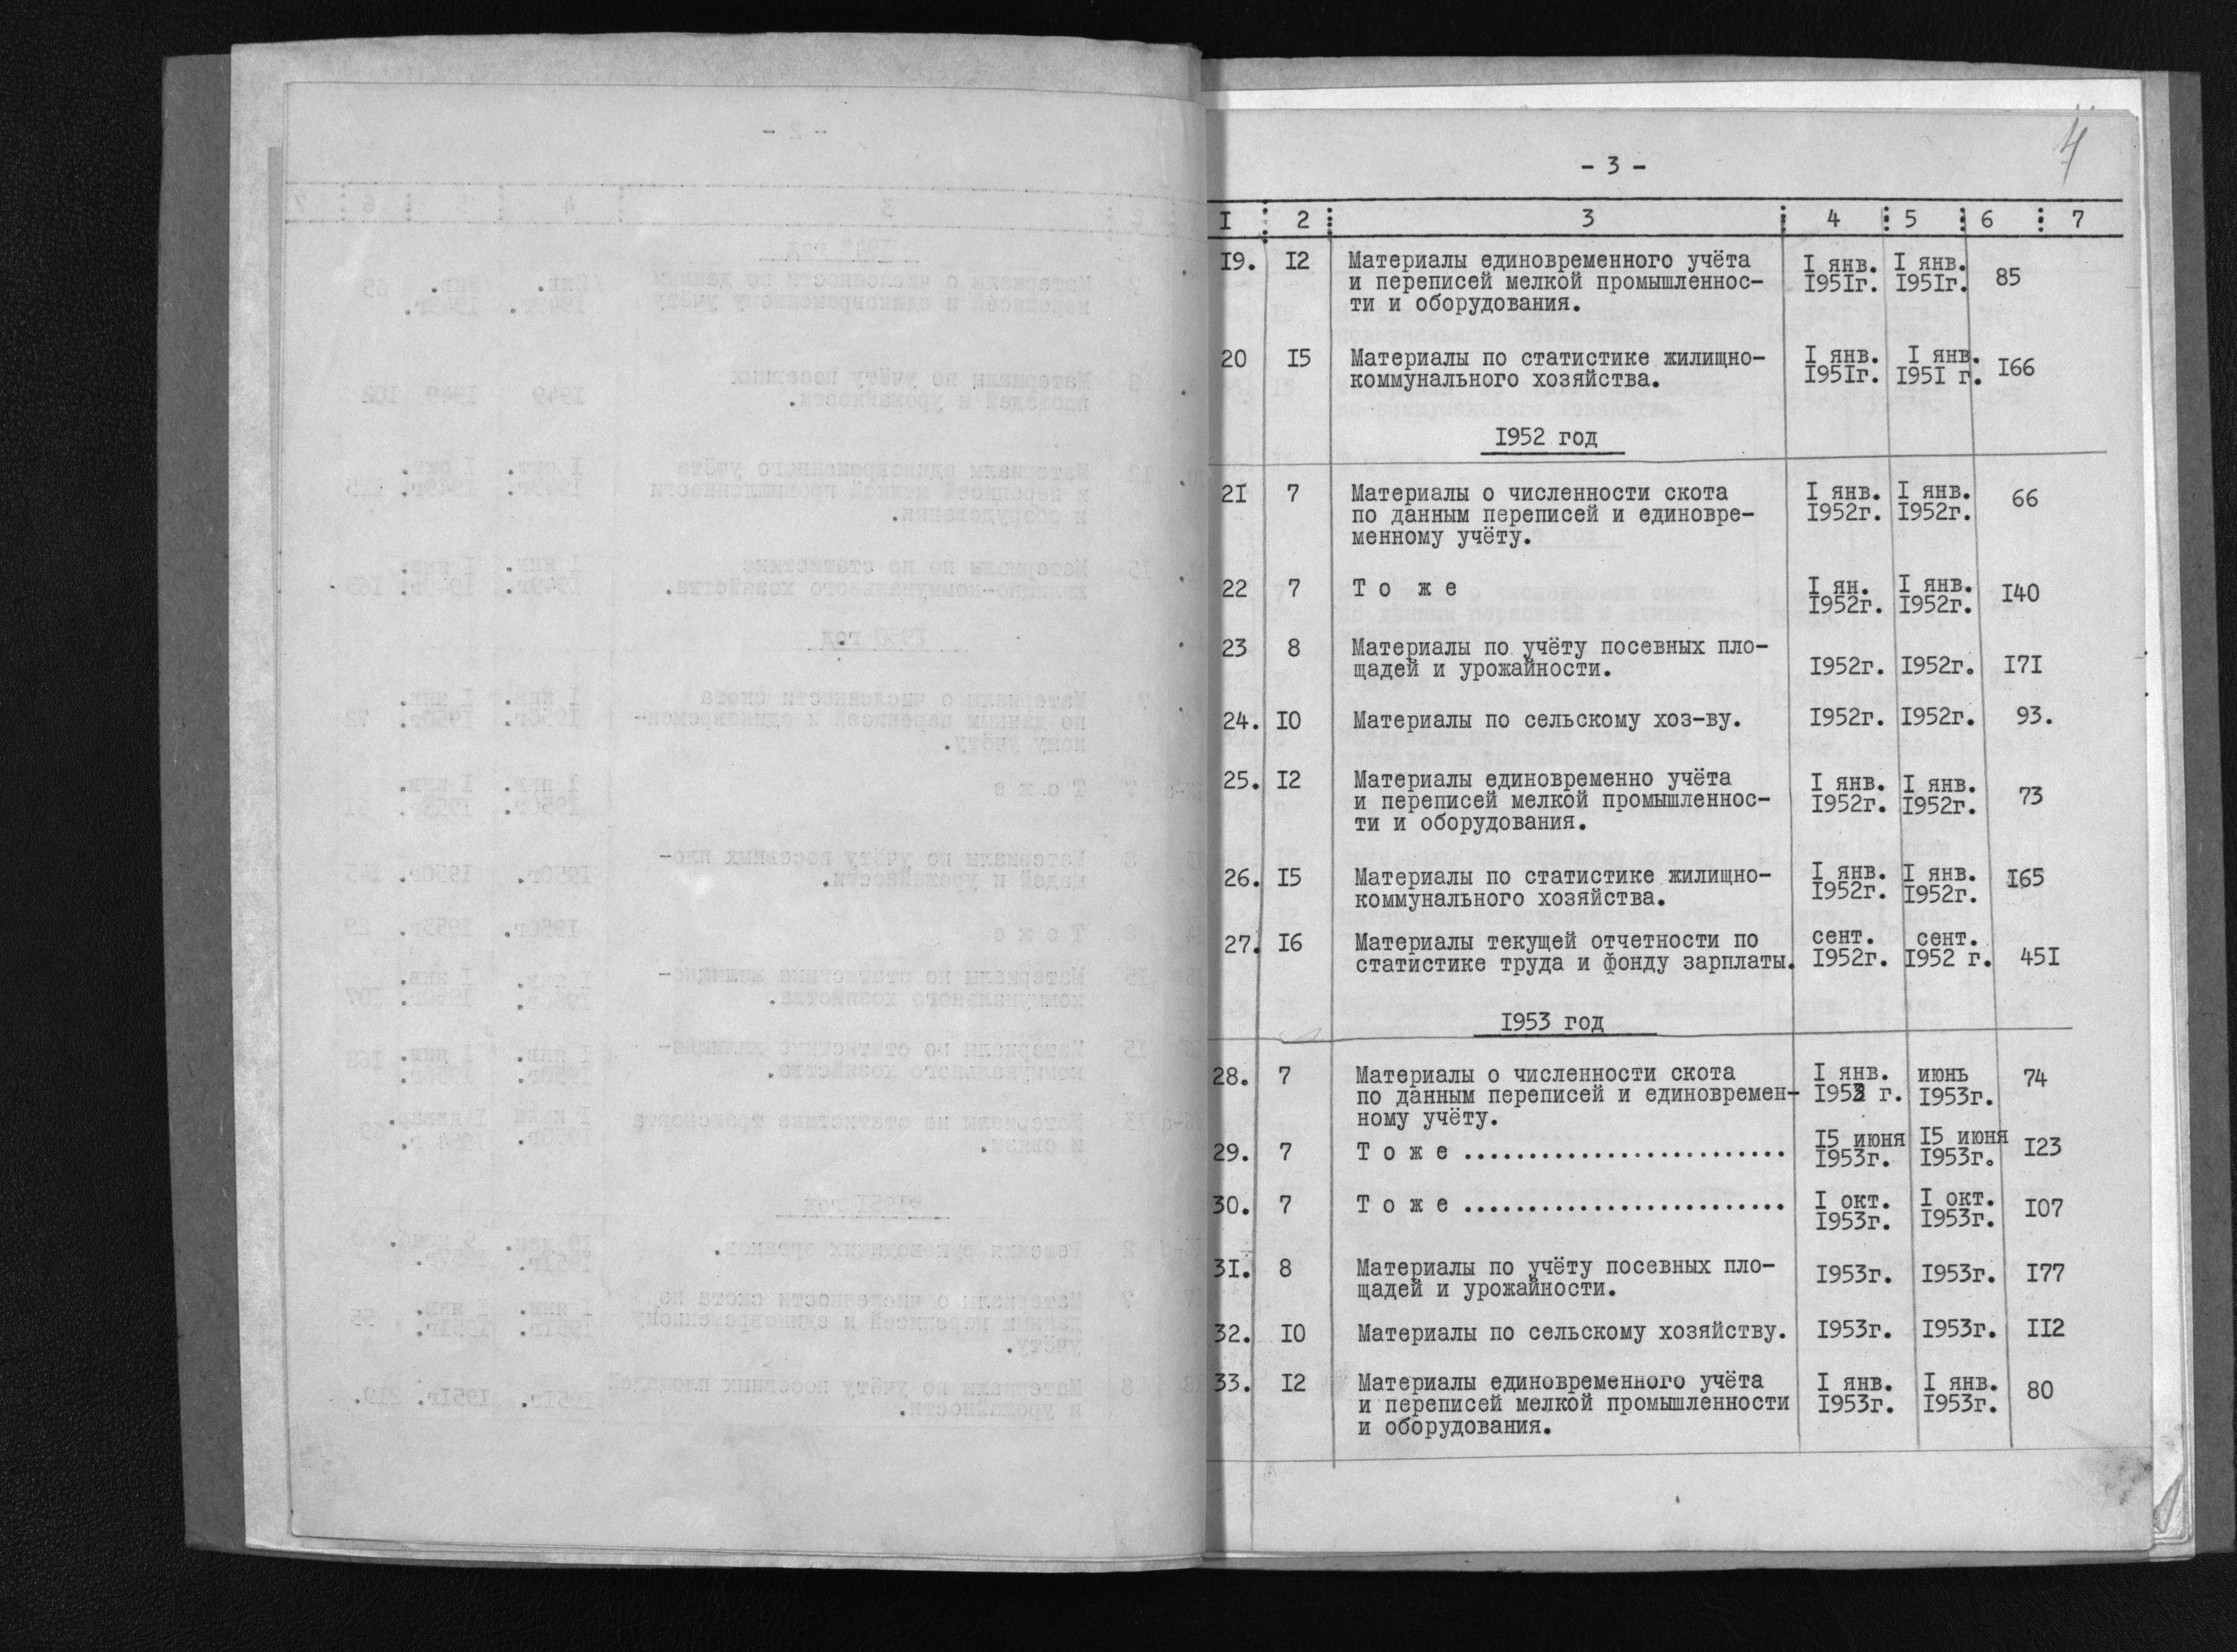 4
- 3 -
I : 2 : 3 : 4 : 5 : 6 : 7
I9. I2 Материалы единовременного учёта I янв. I янв. 85
и переписей мелкой промышленнос- I95Iг. I95Iг.
ти и оборудования.
20 I5 Материалы по статистике жилищно- I янв. I янв. I66
коммунального хозяйства. I95Iг. I95I г.
I952 год
2I 7 Материалы о численности скота I янв. I янв. 66
по данным переписей и единовре- I952г. I952г.
менному учёту.
22 7 Т о ж е I ян. I янв. I40
I952г. I952г.
23 8 Материалы по учёту посевных пло-
щадей и урожайности. I952г. I952г. I7I
24. I0 Материалы по сельскому хоз-ву. I952г. I952г. 93.
25. I2 Материалы единовременно учёта I янв. I янв. 73
и переписей мелкой промышленнос- I952г. I952г.
ти и оборудования.
26. I5 Материалы по статистике жилищно- I янв. I янв. I65
коммунального хозяйства. I952г. I952г.
27. I6 Материалы текущей отчетности по сент. сент.
статистике труда и фонду зарплаты. I952г. I952 г. 45I
I953 год
28. 7 Материалы о численности скота I янв. июнь 74
по данным переписей и единовремен- I953 г. I953г.
ному учёту.
29. 7 Т о ж е ......................... I5 июня I5 июня I23
I953г. I953г.
30. 7 Т о ж е ......................... I окт. I окт. I07
I953г. I953г.
3I. 8 Материалы по учёту посевных пло- I953г. I953г. I77
щадей и урожайности.
32. I0 Материалы по сельскому хозяйству. I953г. I953г. II2
33. I2 Материалы единовременного учёта I янв. I янв. 80
и переписей мелкой промышленности I953г. I953г.
и оборудования.